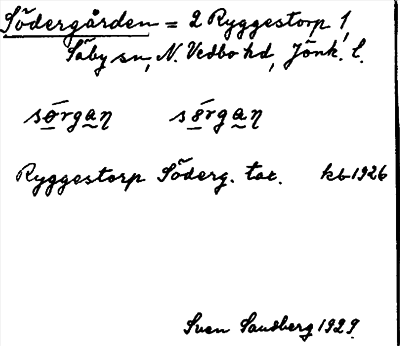 Södergården = 2 Ryggestorp 1,
Säby sn, N. Vedbo hd, Jönk. l.
sǿrgaŋ sǿrgaŋ
Ryggestorp Söderg. tax. kb 1926
Sven Sandberg 1929.